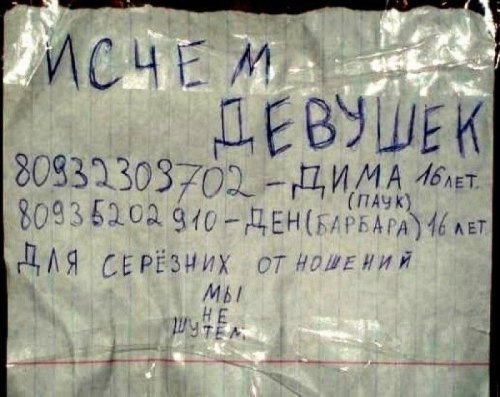 ИСЧЕМ
ДЕВУШЕК
80932309702 - ДИМА 16 ЛЕТ.
(ПАУК)
80935202910 - ДЕН (БАРБАРА) 16 ЛЕТ
ДЛЯ СЕРЁЗНИХ ОТНОШЕНИЙ
МЫ
НЕ
ШУТЕМ.